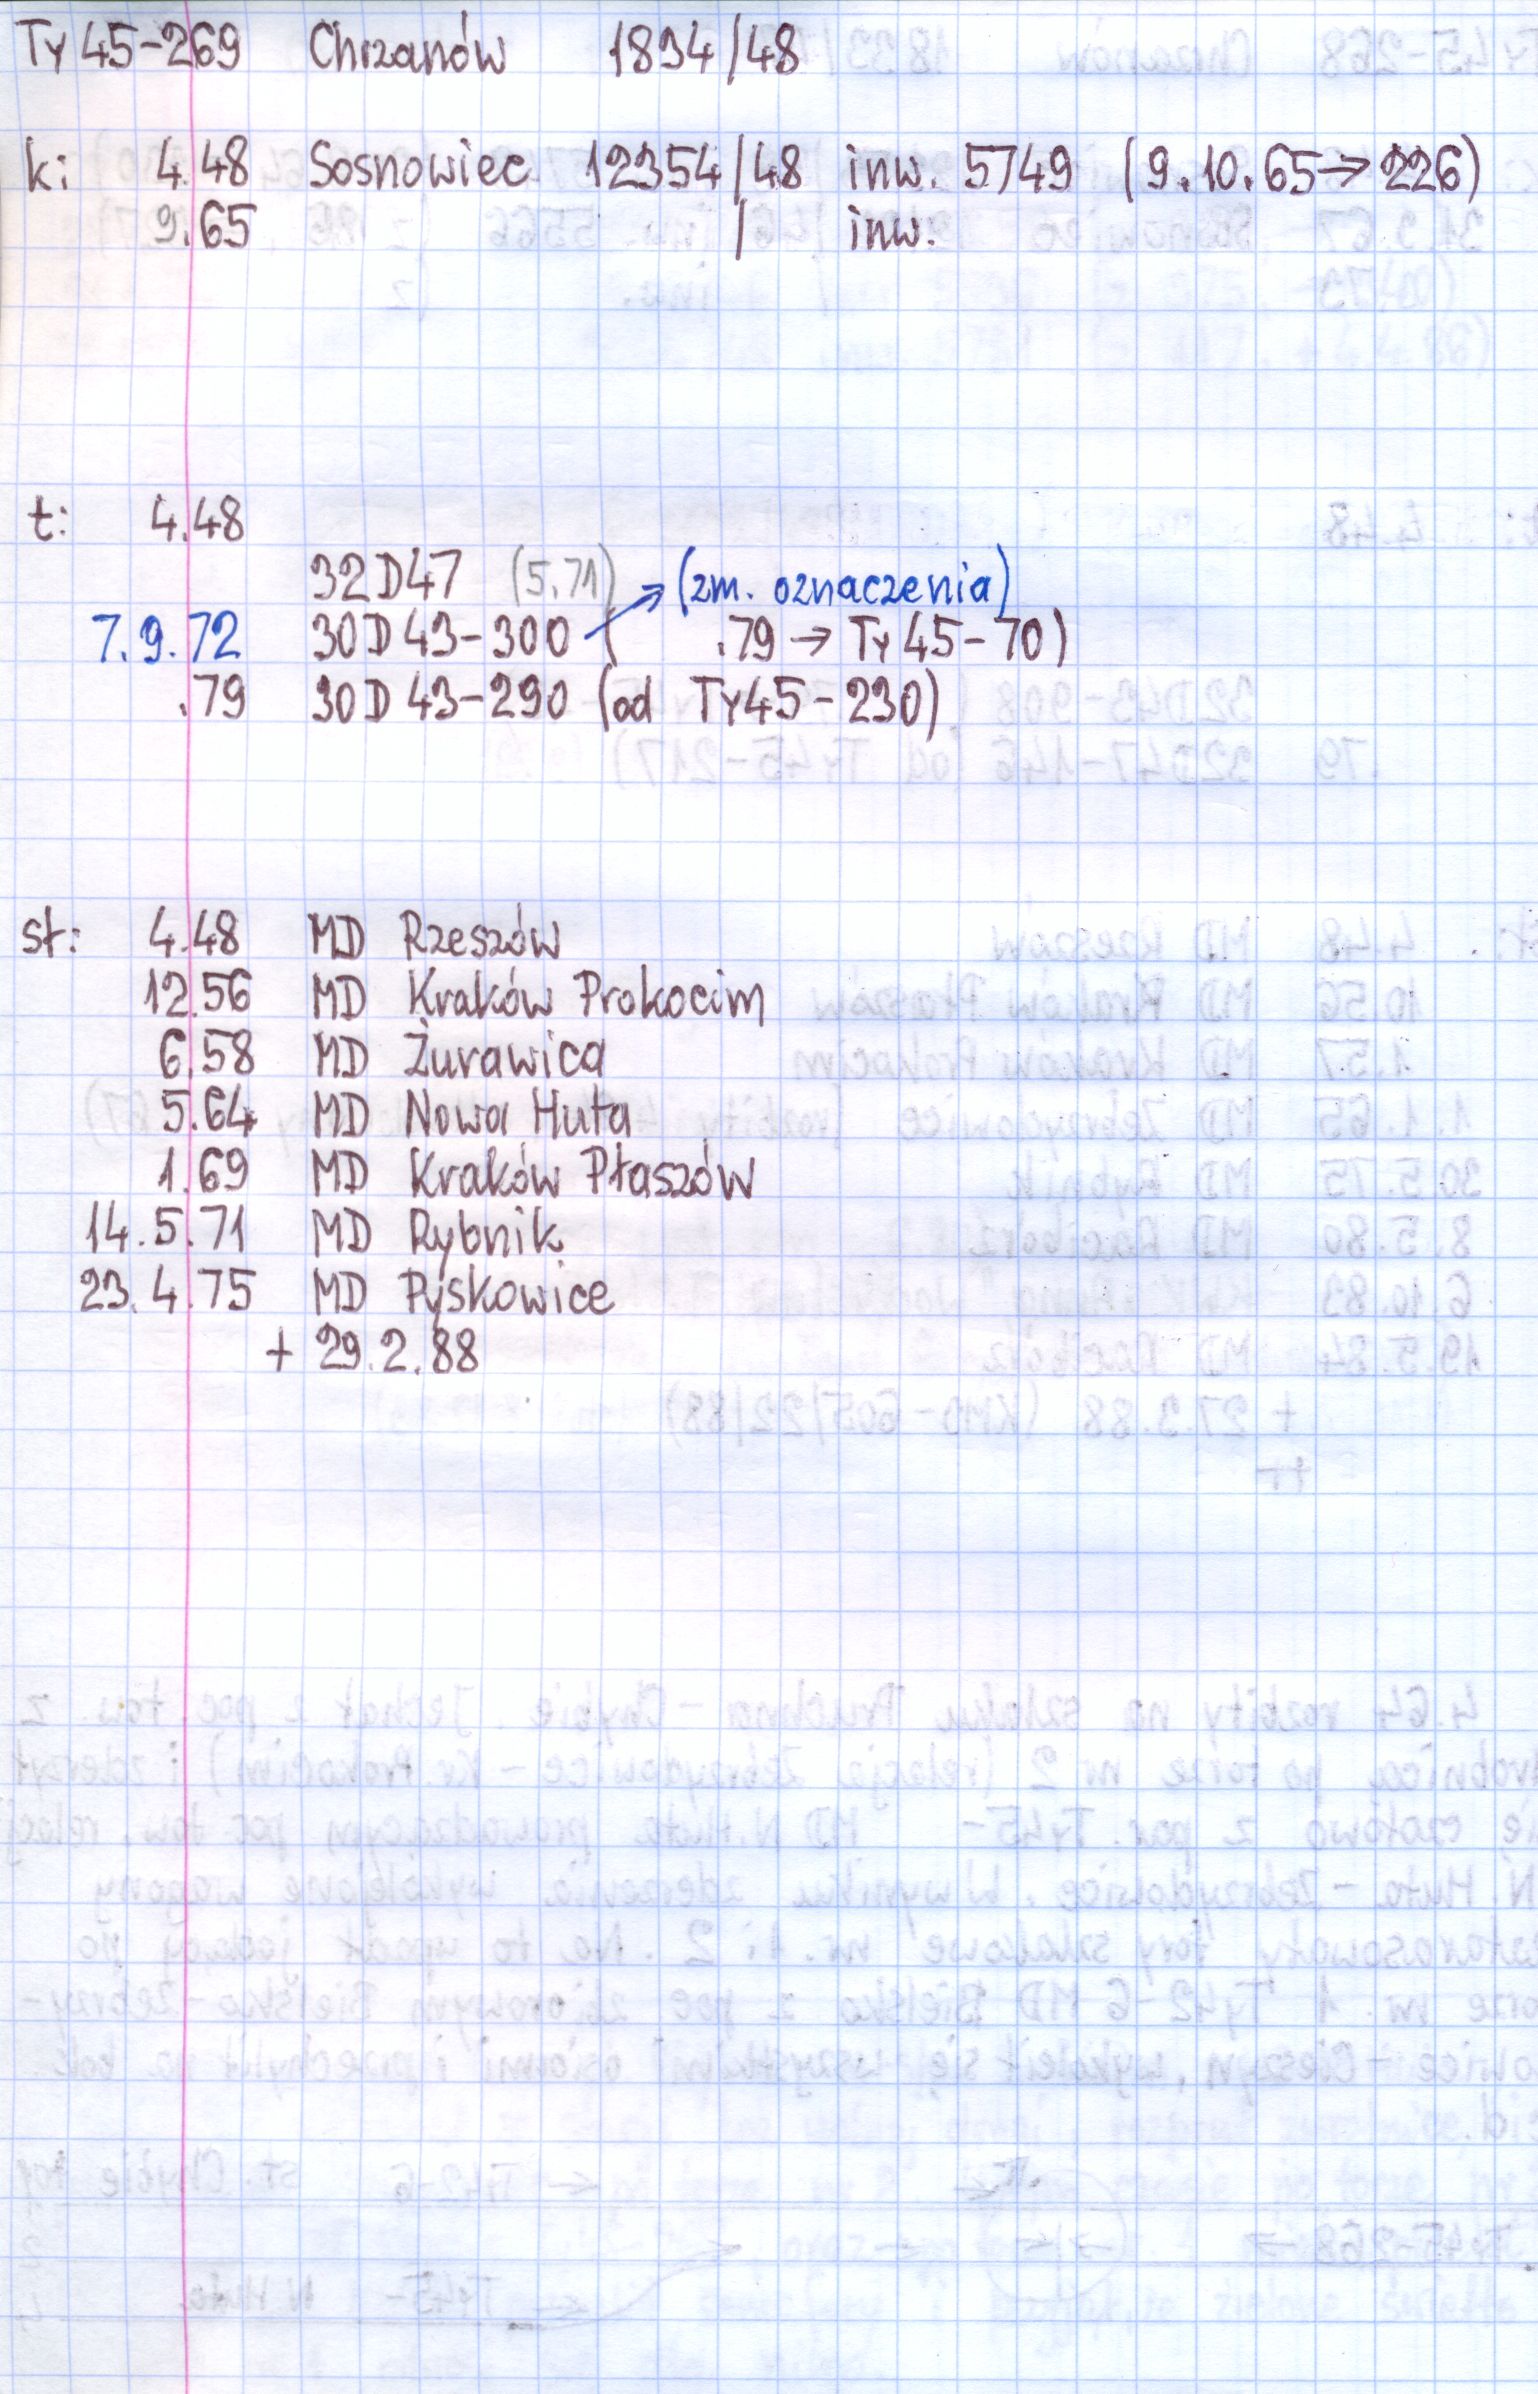 Ty 45-269 Chrzanów 1834/48
k: 4.48 Sosnowiec 12354/48 inw. 5749 (9.10.65→226)
9.65 / inw.
t: 4.48
32D47 (5.71) (zm. oznaczenia)
7.9.72 30D43-300 ( .79 → Ty 45-70)
.79 30D43-290 (od Ty45-230)
st: 4.48 MD Rzeszów
12.56 MD Kraków Prokocim
6.58 MD Żurawica
5.64 MD Nowa Huta
1.69 MD Kraków Płaszów
14.5.71 MD Rybnik
23.4.75 MD Pyskowice
+ 29.2.88